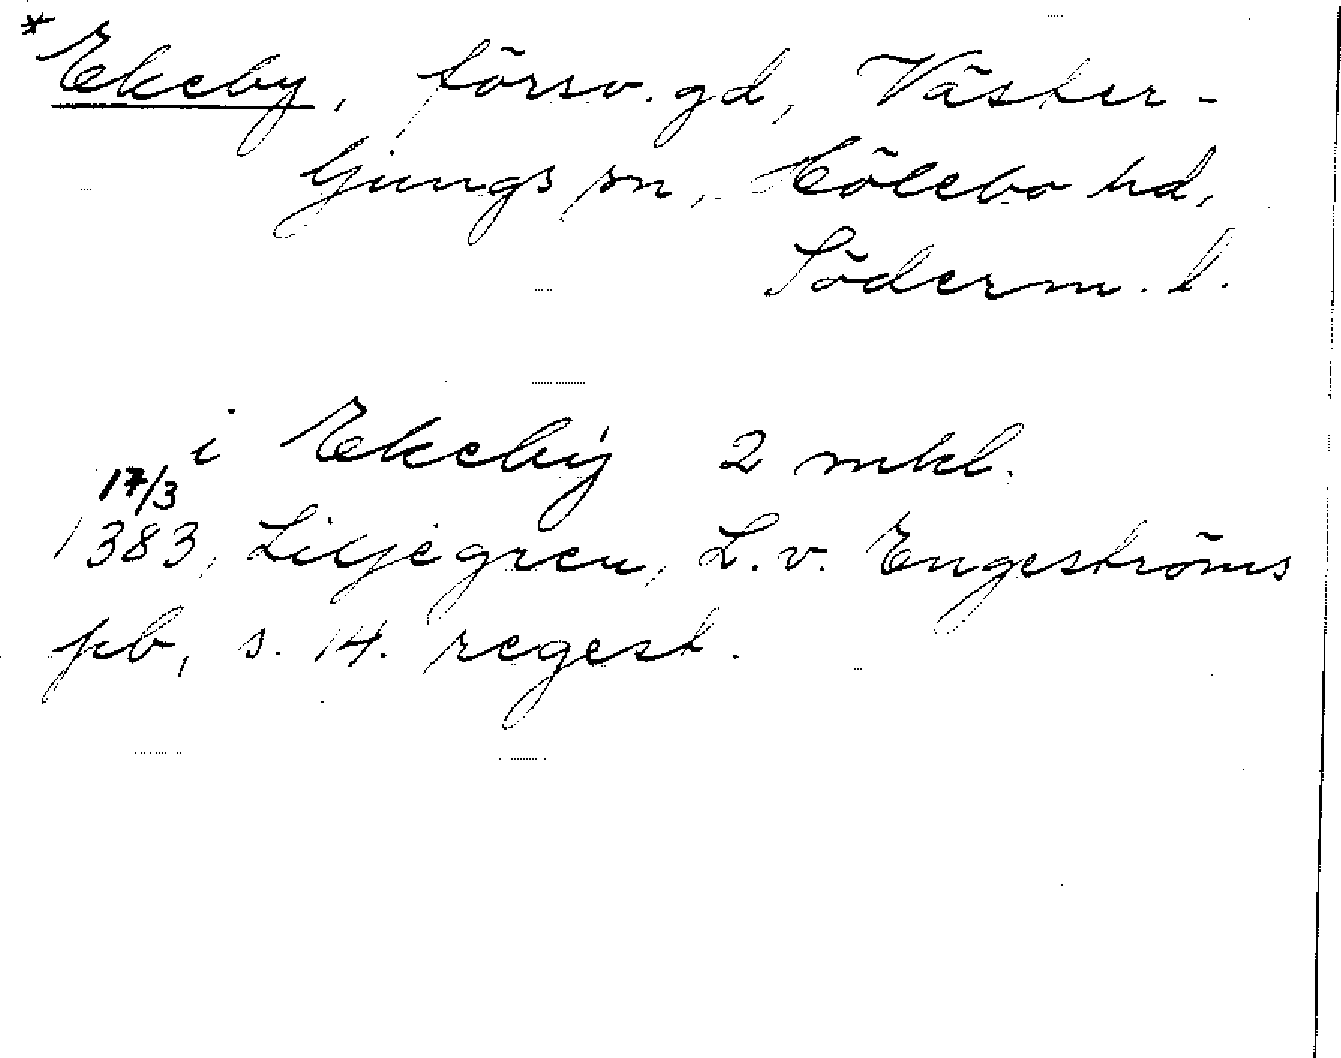 *Ekeby, försv. gd, Väster-
ljungs sn, Hölebo hd,
Söderm. l.
i Ekeby 2 mkl.
17/3
1383, Liljegren, L. v. Engeströms
pb, s. 14. regest.